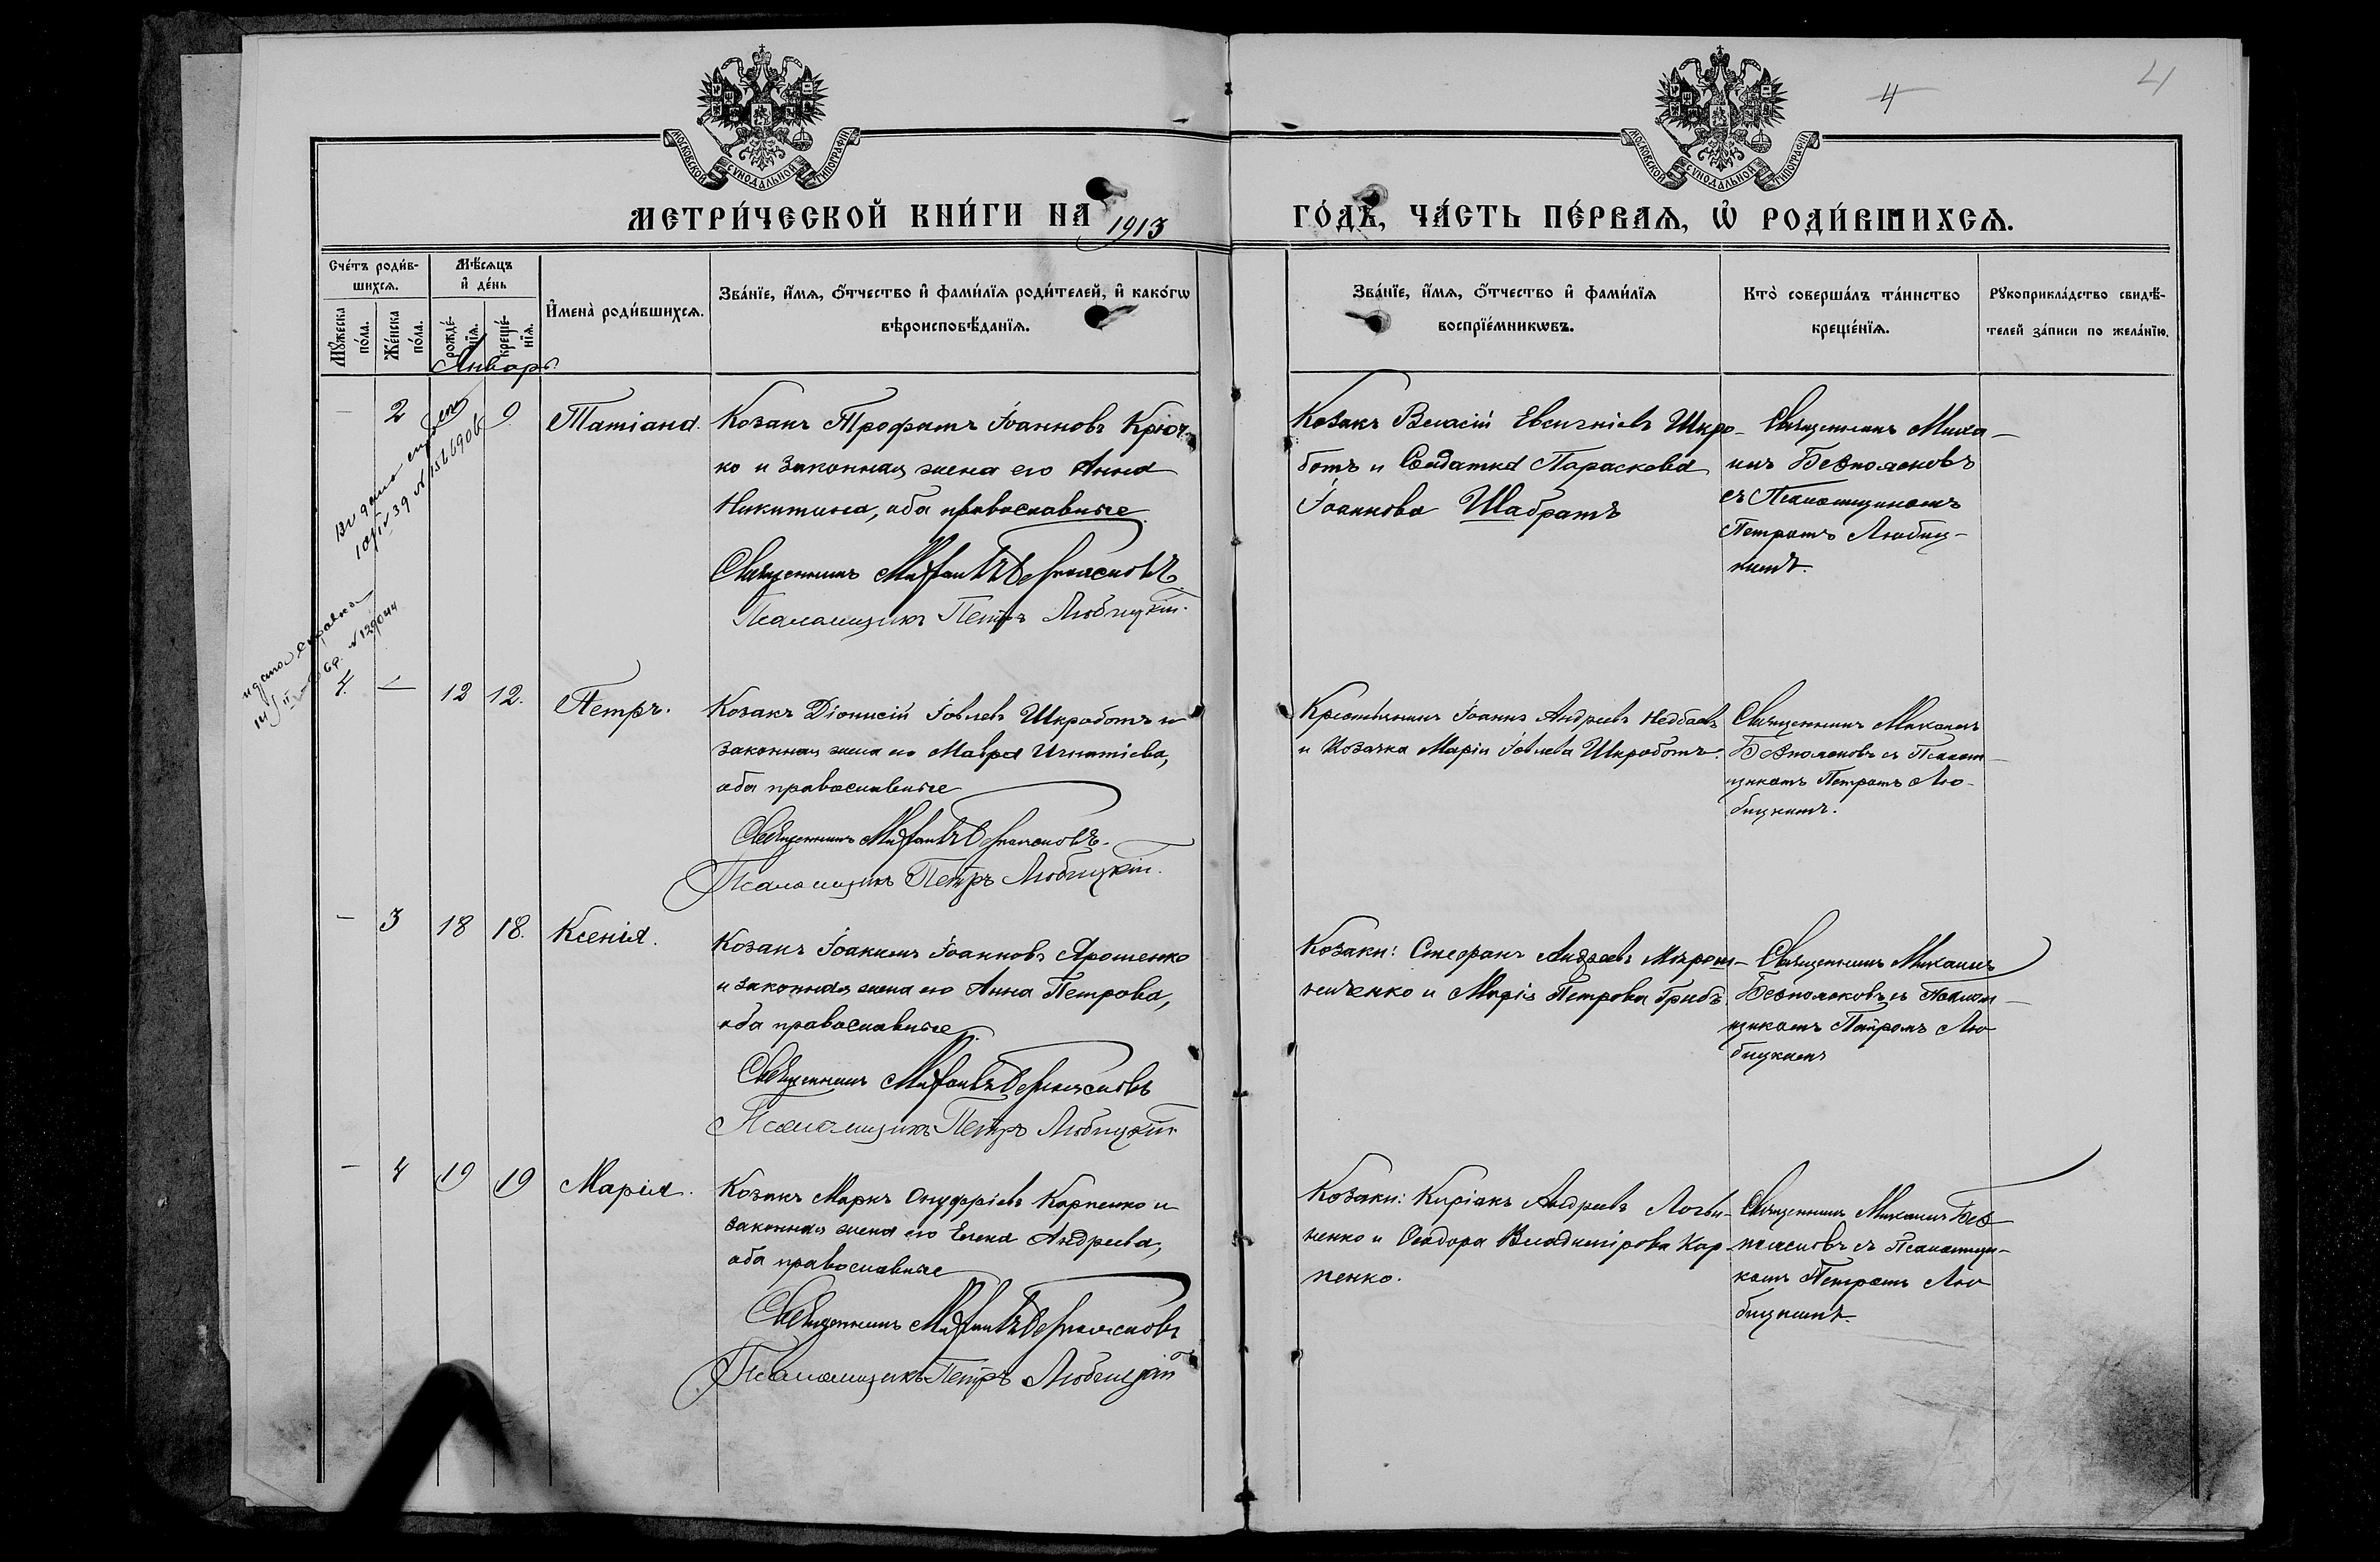 4
4
МОСКОВСКОЙ СУНОДАЛЬНОЙ ТИПОГРАФІИ
МОСКОВСКОЙ СУНОДАЛЬНОЙ ТИПОГРАФІИ
МЕТРИ́ЧЕСКОЙ КНИ́ГИ НА 1913
ГО́ДЪ, ЧА́СТЬ ПЕ́РВАѦ, Ѡ҆ РОДИ́ВШИХСѦ.
Сче́тъ роди́в-
шихсѧ.
Мꙋ́жеска по́ла.
Же́нска по́ла.
Мѣ́сѧцъ
и҆ де́нь
рожде́-
нїѧ.
креще́-
нїѧ.
И҆мена̀ роди́вшихсѧ.
Зва́нїе, и҆́мѧ, ѻ҆́тчество и҆ фами́лїѧ роди́телей, и҆ како́гѡ
вѣроисповѣ́данїѧ.
Зва́нїе, и҆́мѧ, ѻ҆́тчество и҆ фами́лїѧ
воспрїе́мникѡвъ.
Кто̀ соверша́лъ та́инство
креще́нїѧ.
Рꙋкоприкла́дство свидѣ́-
телей за́писи по жела́нїю.
Январь
— 2 9. Татіана.
Козакъ Трофимъ Іоанновъ Крюч-
ко и законная жена его Анна
Никитина, оба православные
Священникъ Михаилъ Безпоясковъ
Псаломщикъ Петръ Любицкій.
Козакъ Власій Евсигніевъ Шкро-
ботъ и Солдатка Параскева
Іоаннова Шабратъ
Священникъ Миха-
илъ Безпоясковъ
съ Псаломщикомъ
Петромъ Любиц-
кимъ.
4. — 12 12. Петръ.
Козакъ Діонисій Іовлевъ Шкроботъ и
законная жена его Мавра Игнатіева,
оба православные
Священникъ Михаилъ Безпоясковъ.
Псаломщикъ Петръ Любицкій.
Крестьянинъ Іоаннъ Андреевъ Недбаевъ
и Козачка Марія Іовлева Шкроботъ.
Священникъ Михаилъ
Безпоясковъ съ Псалом-
щикомъ Петромъ Лю-
бицкимъ.
— 3 18 18. Ксенія.
Козакъ Іоакимъ Іоанновъ Ярошенко
и законная жена его Анна Петрова,
оба православные.
Священникъ Михаилъ Безпоясковъ
Псаломщикъ Петръ Любицкій
Козаки: Стефанъ Андреевъ Мірош-
ниченко и Марія Петрова Грибъ.
Священникъ Михаилъ
Безпоясковъ съ Псалом-
щикомъ Петромъ Лю-
бицкимъ
— 4 19 19 Марія.
Козакъ Маркъ Онуфріевъ Карпенко и
законная жена его Елена Андреева,
оба православные
Священникъ Михаилъ Безпоясковъ
Псаломщикъ Петръ Любицкій
Козаки: Киріакъ Андреевъ Логви-
ненко и Феодора Владимірова Кар-
пенко.
Священникъ Михаилъ Без-
поясковъ съ Псаломщи-
комъ Петромъ Лю-
бицкимъ.